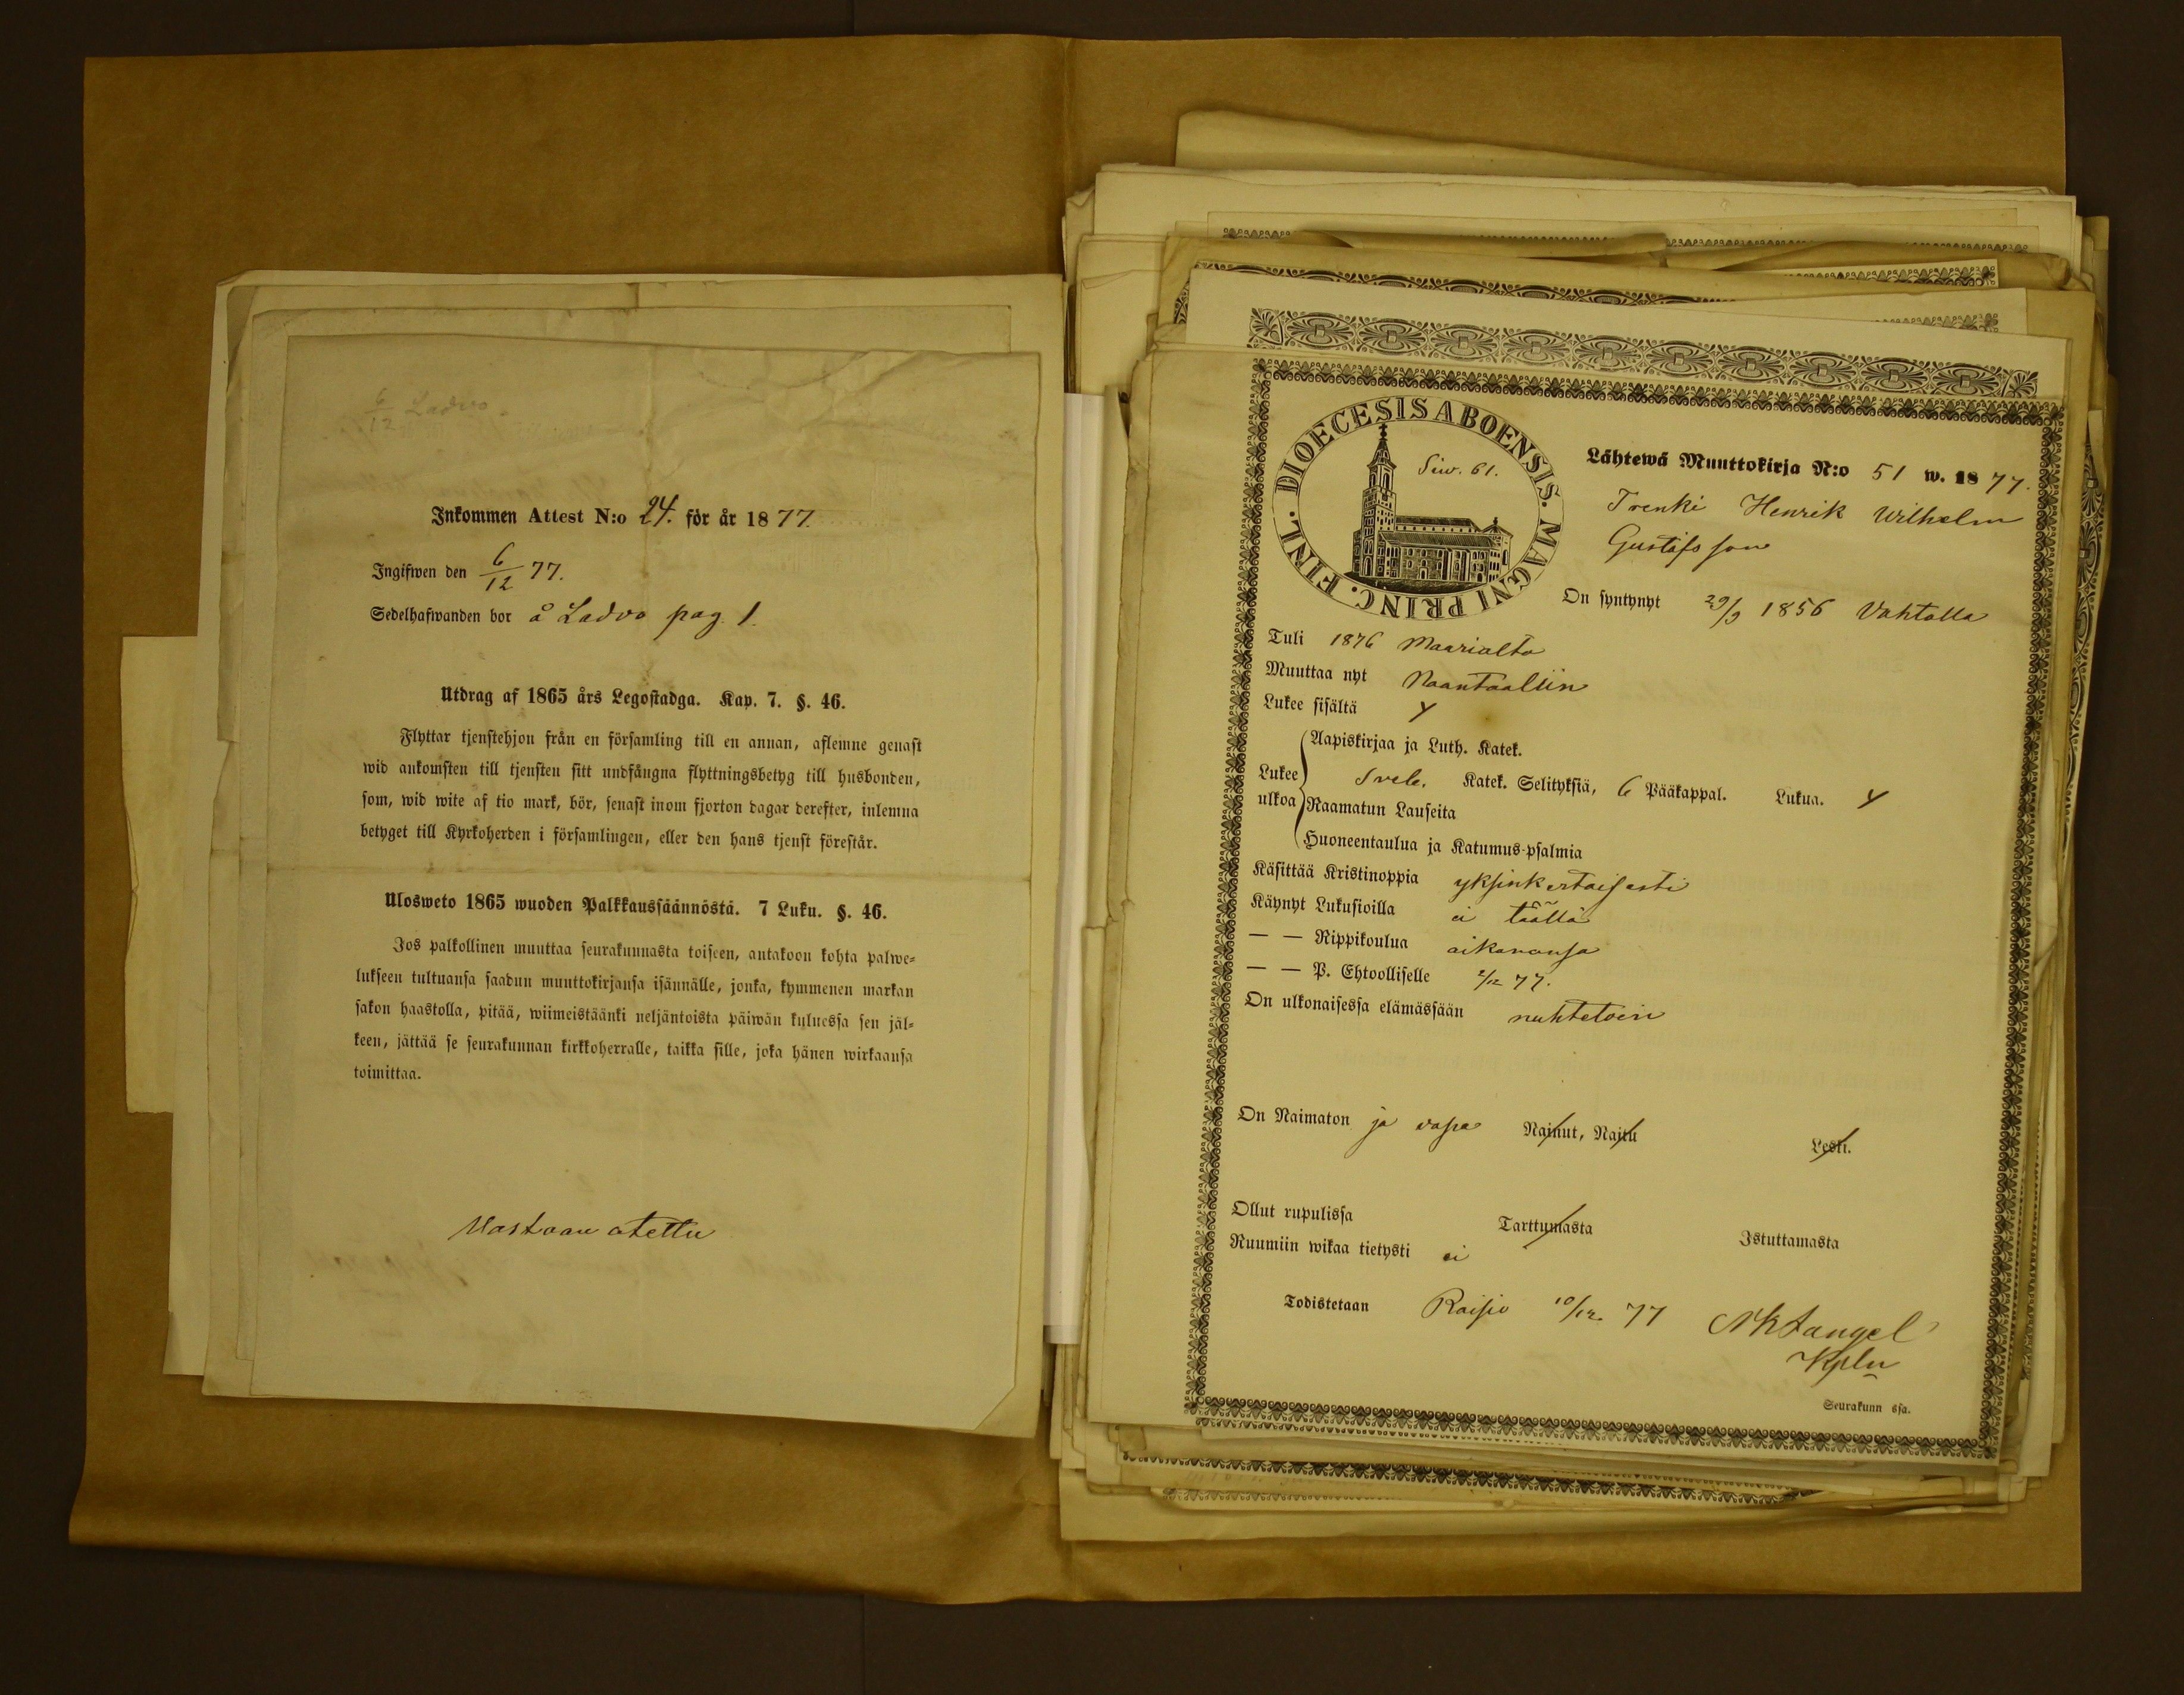 6/12 Ladvo.
Inkommen Attest N:o 24. för år 1877.
Ingifwen den 6/12 77.
Sedelhafwanden bor å Ladvo pag. 1.
Utdrag af 1865 års Legostadga. Kap. 7. §. 46.
Flyttar tjenstehjon från en församling till en annan, aflemne genast
wid ankomsten till tjensten sitt undfångna flyttningsbetyg till husbonden,
som, wid wite af tio mark, bör, senast inom fjorton dagar derefter, inlemna
betyget till Kyrkoherden i församlingen, eller den hans tjenst förestår.
Ulosweto 1865 wuoden Palkkaussäännöstä. 7 Luku. §. 46.
Jos palkollinen muuttaa seurakunnasta toiseen, antakoon kohta palwe=
lukseen tultuansa saadun muuttokirjansa isännälle, jonka, kymmenen markan
sakon haastolla, pitää, wiimeistäänki neljäntoista päiwän kuluessa sen jäl=
keen, jättää se seurakunnan kirkkoherralle, taikka sille, joka hänen wirkaansa
toimittaa.
Vastaan otettu
DIOECESIS ABOENSIS. MAGNI PRINC. FINL.
Siw. 61.
Lähtewä Muuttokirja N:o 51 w. 1877.
Trenki Henrik Wilhelm
Gustafsson
On syntynyt 29/9 1856 Vahtolla
Tuli 1876 Maarialta
Muuttaa nyt Naantaaliin
Lukee sisältä y
Lukee ulkoa
Aapiskirjaa ja Luth. Katek.
Sveb. Katek. Selityksiä, 6 Pääkappal. Lukua. y
Raamatun Lauseita
Huoneentaulua ja Katumus-psalmia
Käsittää Kristinoppia yksinkertaisesti
Käynyt Lukusioilla ei täällä
— — Rippikoulua aikanansa
— — P. Ehtoolliselle 2/12 77.
On ulkonaisessa elämässään nuhtetoin
On Naimaton ja vapa Nainut, Naitu Leski.
Ollut rupulissa Tarttumasta Istuttamasta
Ruumiin wikaa tietysti ei
Todistetaan Raisio 10/12 77
Kpln
Seurakunn ssa.